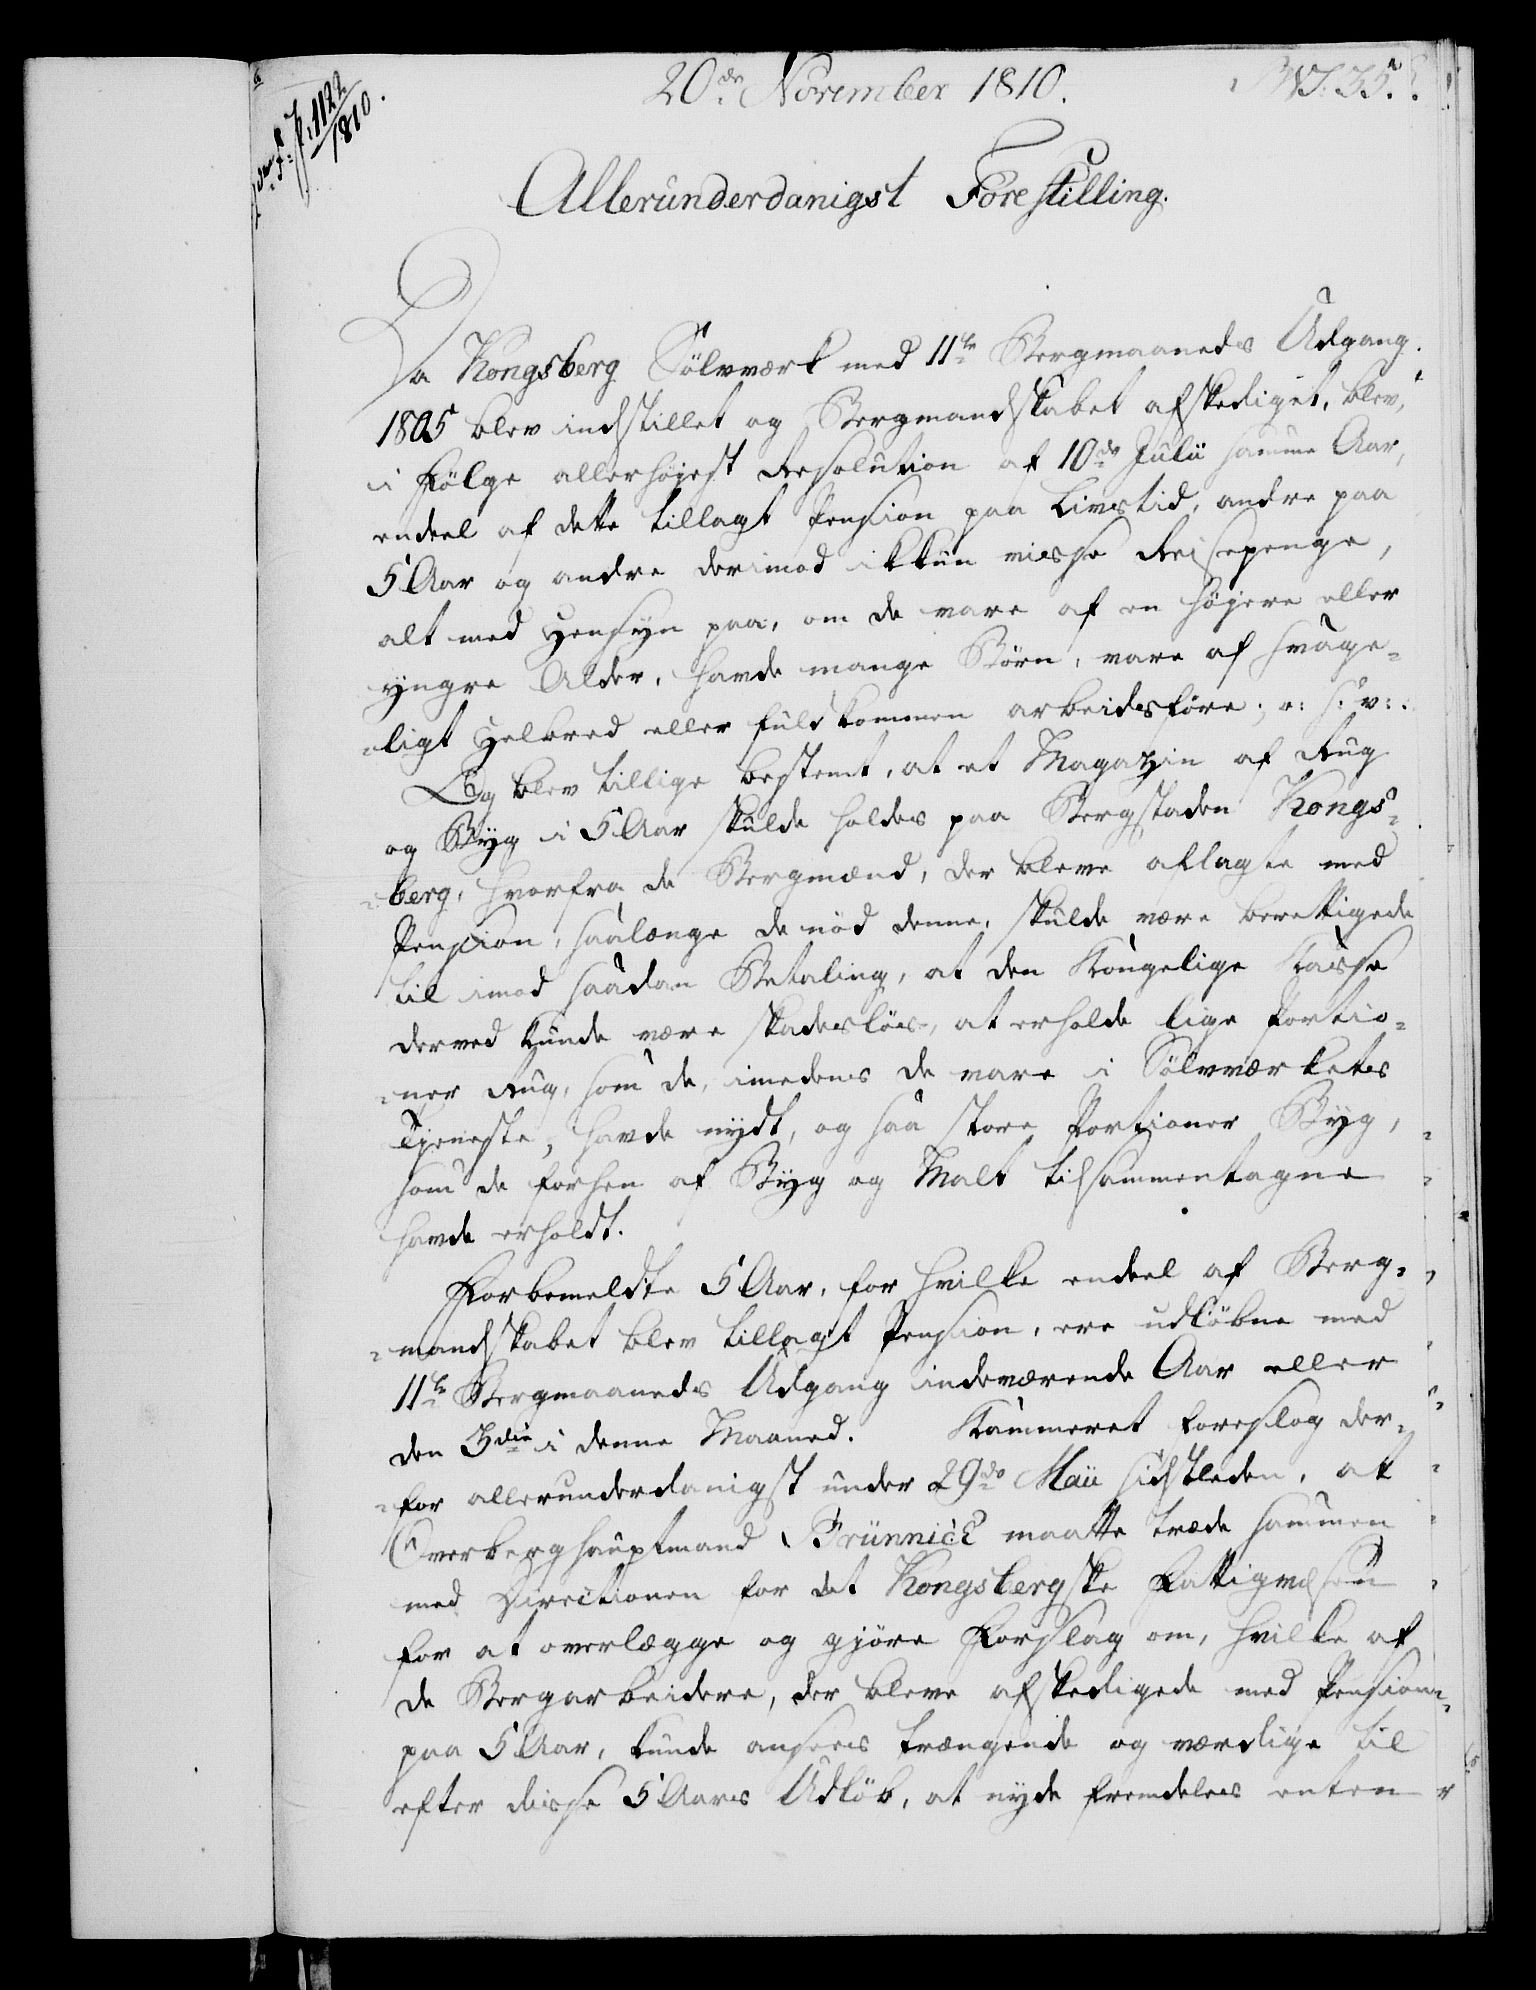 20de November 1810.
1122
1810.
Allerunderdanigst Forestilling.
Da Kongsberg Sölvværk med 11te Bergmaaneds Udgang
1805 blev indstillet og Bergmandskabet afskediget, blev,
i Fölge allerhöjest Resolution af 10de Julii samme Aar,
endeel af dette tillagt Pension paa Livstid, andre paa
5 Aar og andre derimod ikkun visse Reisepenge,
alt med Hensyn paa, om de vare af en höjere eller
yngre Alder, havde mange Börn, vare af svage-
ligt Helbred eller fuldkommen arbeidsföre, o: s: v:
Og blev tillige bestemt, at et Magazin af Rug
og Byg i 5 Aar skulde holdes paa Bergstaden Kongs-
berg, hvorfra de Bergmænd, der bleve aflagte med
Pension, saalænge de nöd denne, skulde være berettigede
til imod saadan Betaling, at den Kongelige Kasse
derved kunde være skadeslös, at erholde lige Portio-
ner Rug, som de, imedens de vare i Sölvværkets
Tjeneste, havde nydt, og saa store Portioner Byg,
som de forhen af Byg og Malt tilsammentagne
havde erholdt.
Forbemeldte 5 Aar, for hvilke endeel af Berg-
mandskabet blev tillagt Pension, ere udlöbne med
11te Bergmaaneds Udgang indeværende Aar eller
den 3die i denne Maaned. Kammeret foreslog der-
for allerunderdanigst under 29de Maii sidstleden, at
Overberghauptmand Brünnich maatte træde sammen
med Directionen for det Kongsbergske Fattigvæsen
for at overlægge og gjöre Forslag om, hvilke af
de Bergarbeidere, der bleve afskedigede med Pension
paa 5 Aar, kunde ansees trængende og værdige til
efter disse 5 Aars Udlöb, at nyde fremdeles enten